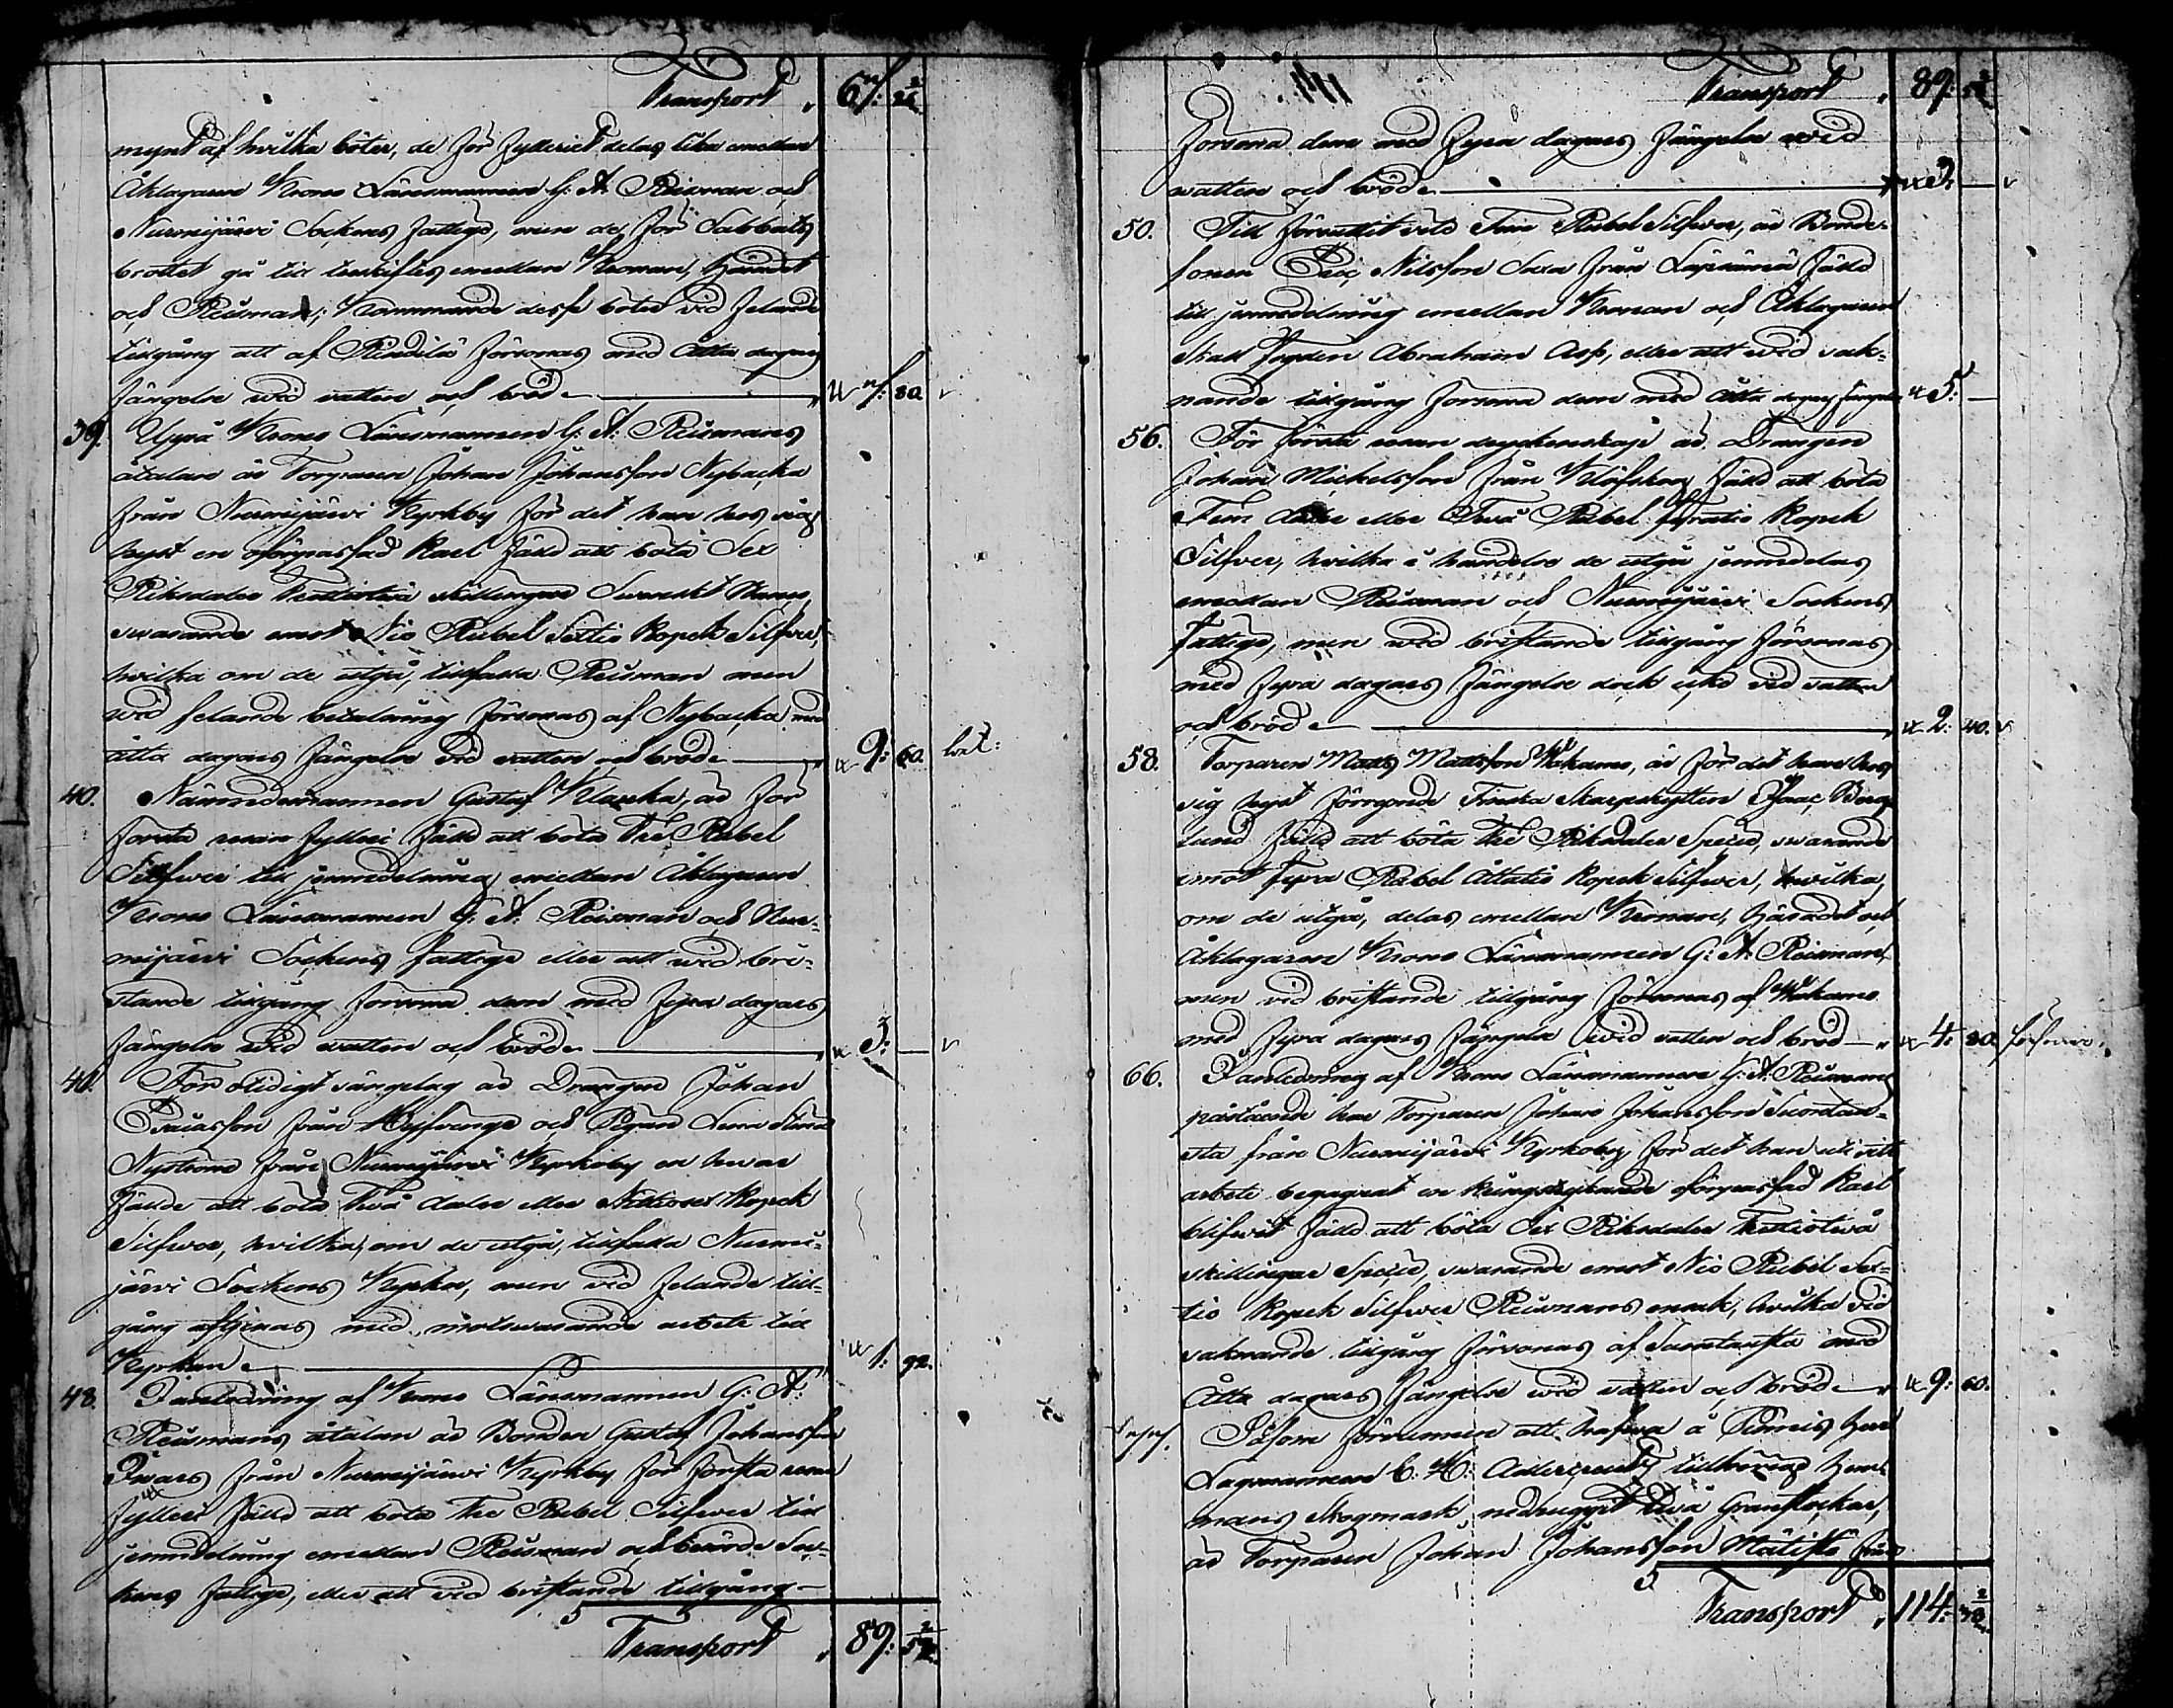 Transport „ 67:
mynt af hvilka böter, de för fylleriet delas lika emellan
Åklagaren Krono Länsmannen G: A: Reisman och
Nurmijärvi Sockens fattige, men de för Sabbaths
brottet gå till treskiftes emellan Kronan, Häradet
och Reisman; Kommande desse böter vid felande
tillgång att af försonas med Åtta dagars
fängelse vid vatten och bröd 80.
39. Uppå Krono Länsmannen G: A: Reismans
åtalan är Torparen Johan Johansson Nybacka
från Nurmijärvi Kyrkby för det han hos sig
hyst en oförpassad Karl fälld att böta Sex
Riksdaler Trettiotvå skillingar Svenskt
svarande emot Nio Rubel Sextio Kopek Silfver,
hvilka om de utgå, tillfalla Reisman men
vid felande betalning försonas af Nybacka med
åtta dagars fängelse vid vatten och bröd „ 9: 60.
40. Nämndemannen Gustaf Klaucka, är för
första resan fylleri fälld att böta Tre Rubel
Silfver till jemnfördelning emellan Åklagaren
Krono Länsmannen G: A: Reisman och Nur-
mijärvi Sockens fattige eller att vid bri-
stande tillgång försona dem med fyra dagars
fängelse vid vatten och bröd „ 3: —
För otidigt sängelag är Drängen Johan
från och Pigan Lena Stina
Nyström från Nurmijärvi Kyrkoby en hvar
fällde att böta Två daler eller Nittiosex Kopek
Silfver, hvilka, om de utgå, tillfalla Nurmi-
järvi Sockens Kyrka, men vid felande till-
gång aftjenas med motsvarande arbete till
Kyrkan 1: 92.
48. I anledning af Krono Länsmannen G: A:
Reismans åtalan är Bonden Gustaf Johansson
Iivars från Nurmijärvi Kyrkby för första resan
fylleri fälld att böta Tre Rubel Silfver till
jemndelning emellan Reisman och berörde Soc-
kens fattige, eller att vid bristande tillgång
Transport „ 89:
Transport „ 89:
försona dem med fyra dagars fängelse vid
vatten och bröd 3. —
50. Till förvittit vite Fem Rubel Silfver, är Bonde-
sonen Nilsson från fälld
till jemndelning emellan Kronan och Åklagaren
Stads Fogden Abraham Asp, eller att vid sak-
nande tillgång försona dem med åtta dagars fängelse 5: —
56. För första resan dryckenskap är Drängen
Johan Michelsson från Klöfskog fälld att böta
Fem daler eller Två Rubel fyratio Kopek
Silfver, hvilka i händelse de utgå jemndelas
emellan Reisman och Nurmijärvi Sockens
fattige, men vid bristande tillgång försonas
med fyra dagars fängelse dock icke vid vatten
och bröd 2: 40.
58. Torparen Matts Mattsson är för det han hos
sig hyst förrymde Finska Skarpskytten Isaac Berg-
lund fälld att böta Tre Riksdaler Specie, svarande
emot fyra Rubel Åttatio Kopek Silfver, hvilka,
om de utgå, delas emellan Kronan, Häradet och
Åklagaren Krono Länsmannen G: A: Reisman,
men vid bristande tillgång försonas af
med fyra dagars fängelse vid vatten och bröd „ 4: 80.
66. I anledning af Krono Länsmannen G: A: Reismans
påstående har Torparen Johan Johansson Suontau-
sta från Nurmijärvi Kyrkoby för det han uti sitt
arbete begagnat en kringstrykande oförpassad Karl
blifvit fälld att böta Sex Riksdaler Trettiotvå
skillingar Specie, svarande emot Nio Rubel Sex-
tio Kopek Silfver Reismans ensak, hvilka vid
saknande tillgång försonas af Suontausta med
Åtta dagars fängelse vid vatten och bröd „ 9: 60.
Såsom förvunnen att hafva å Herr
Lagmannen C: H: Adlercreutz tillhörig
mans Skogmark nedhuggit två Granstockar,
är Torparen Johan Johansson från
Transport „ 114: